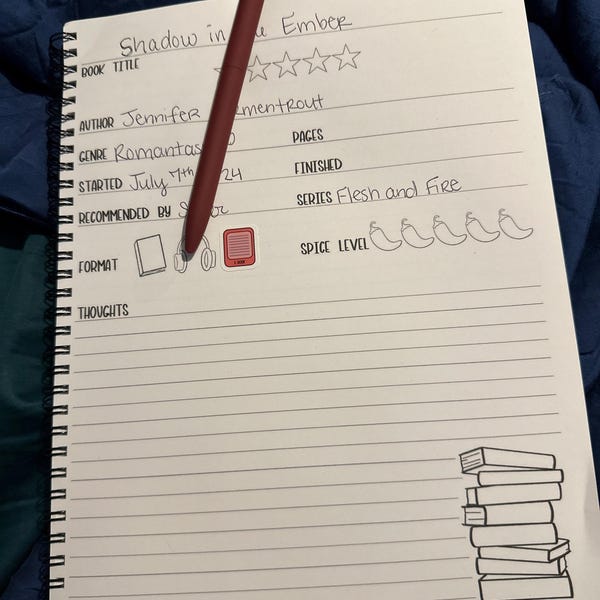 Shadow in Ember
BOOK TITLE
AUTHOR Jennifer mentrout
GENRE Romantas PAGES
STARTED July 7th 24 FINISHED
RECOMMENDED BY SERIES Flesh and Fire
FORMAT SPICE LEVEL
THOUGHTS